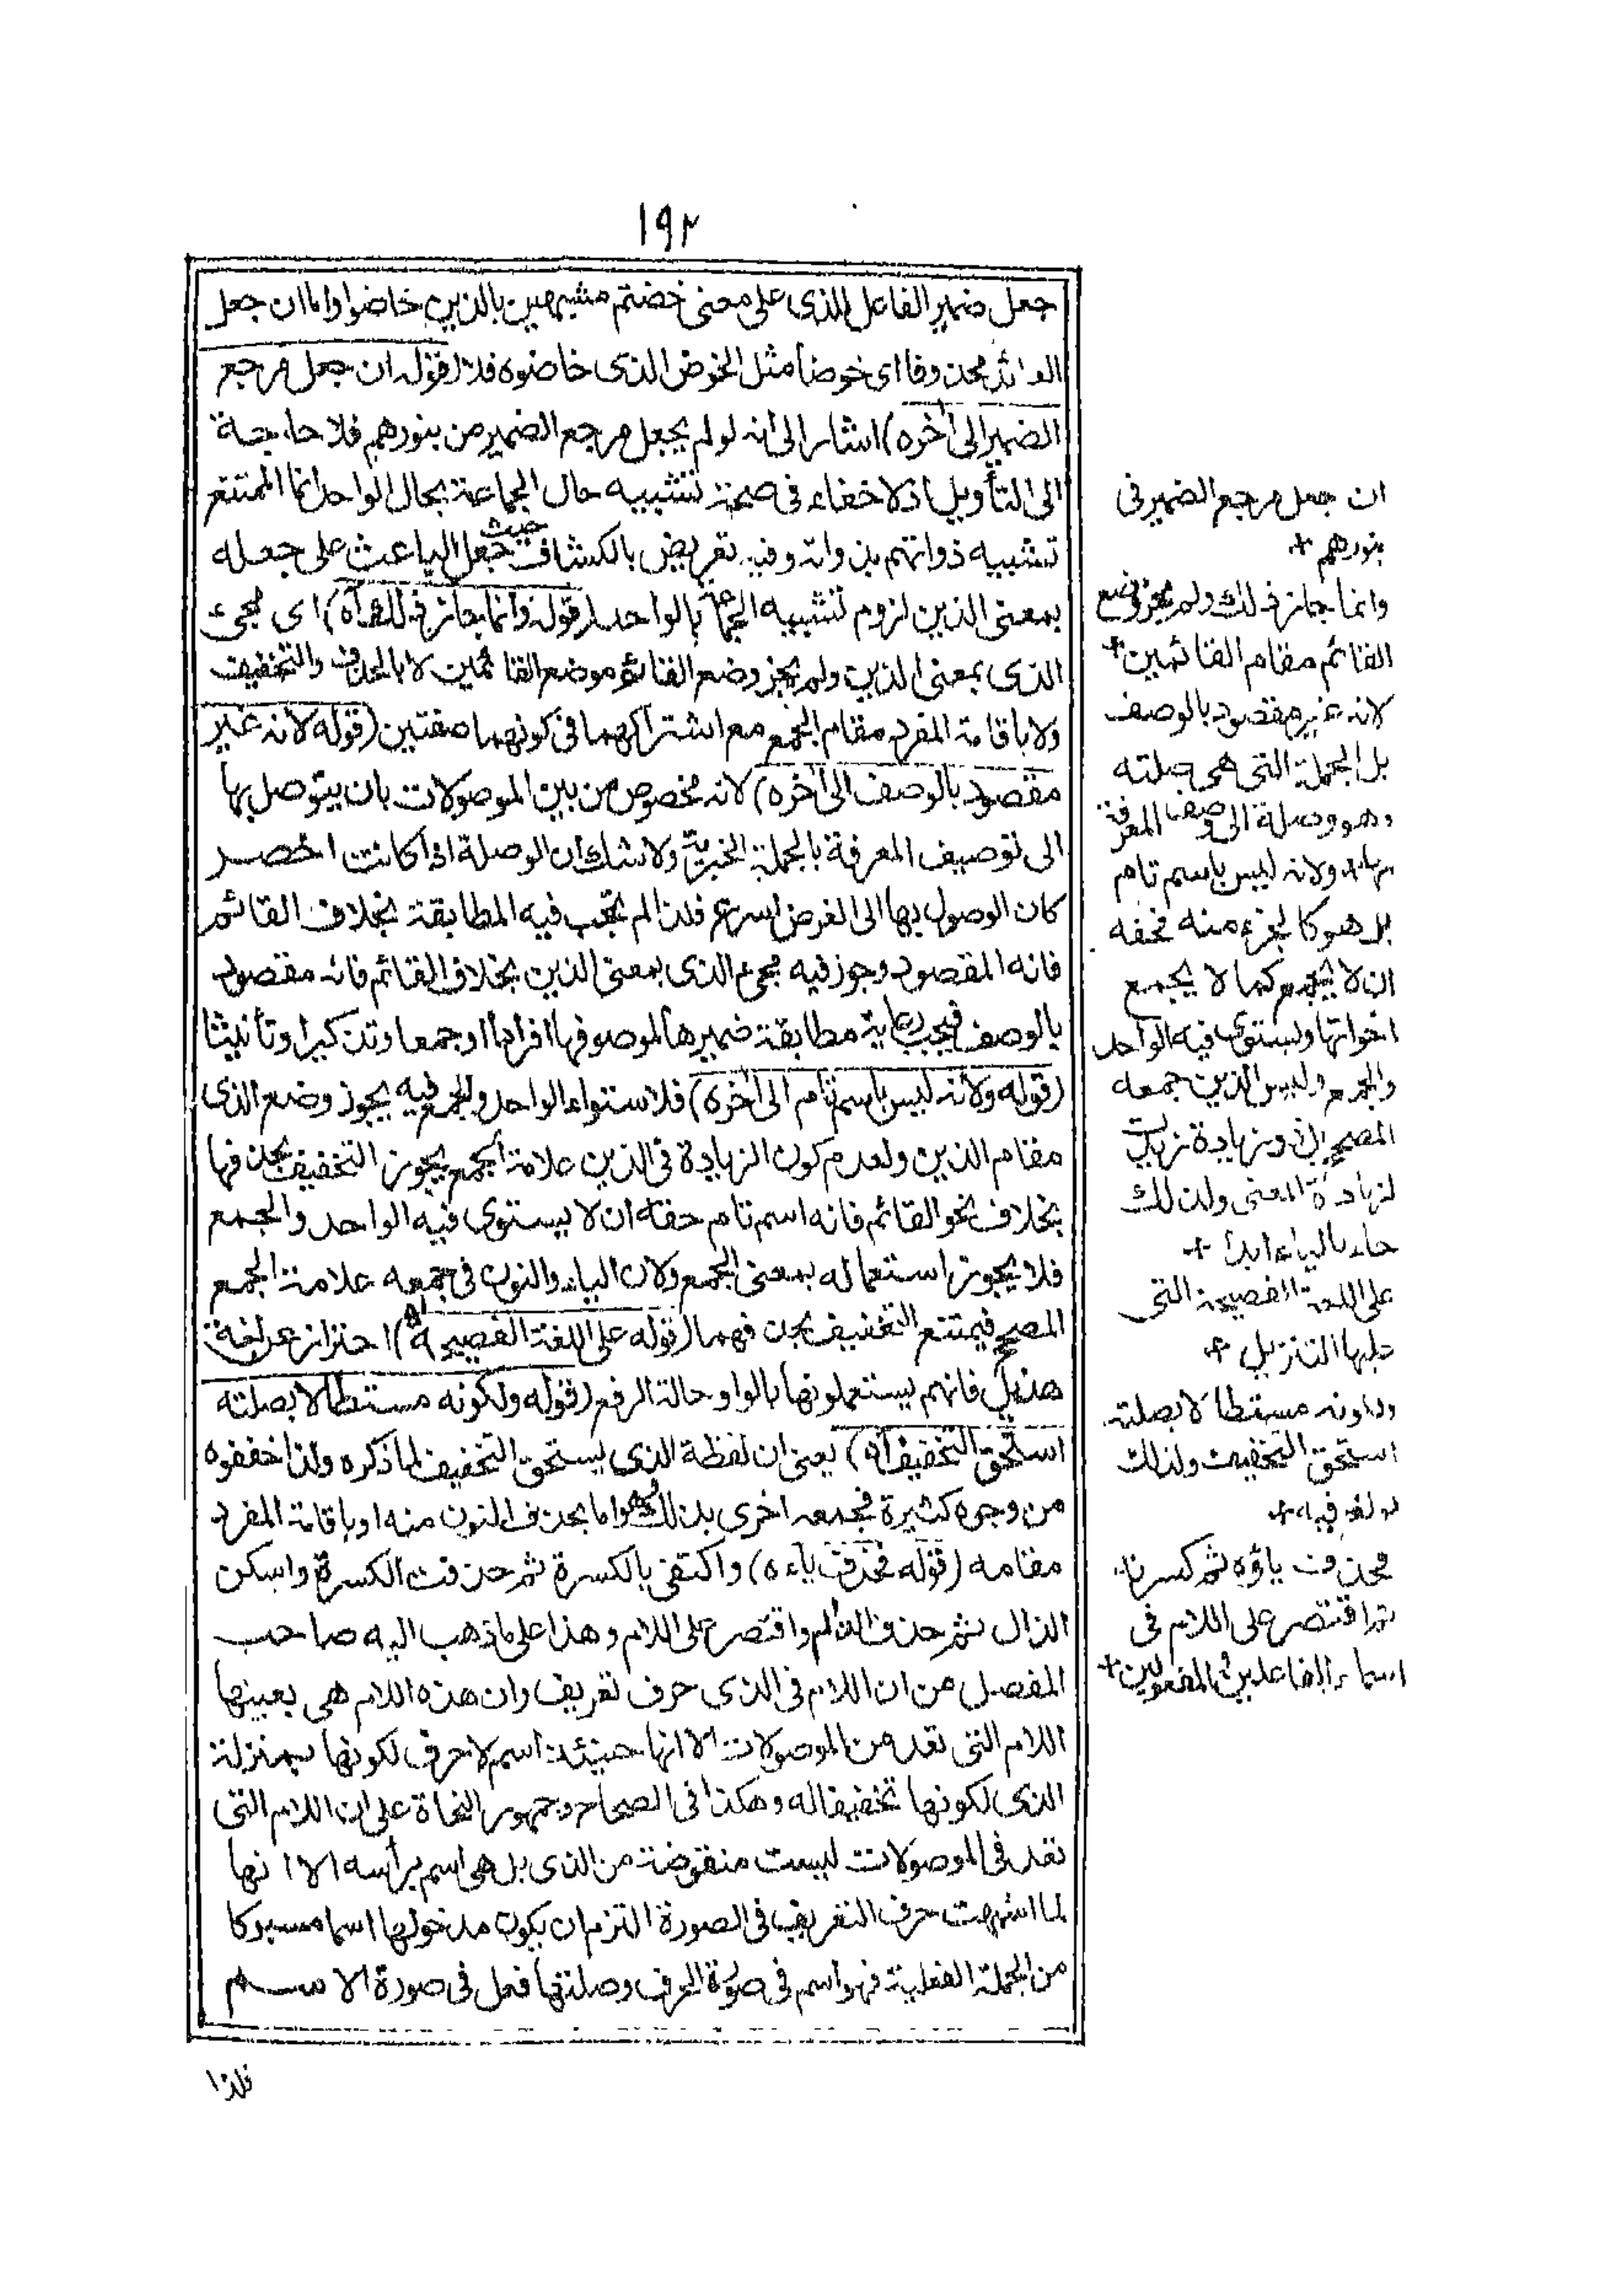 ١٩٢
جعل ضمير الفاعل للذى على معنى خضتم مشبهين بالذين خاضوا واما ان جعل
العائد محذوفا اى خوضا مثل الخوض الذى خاضوه فلا (قوله ان جعل مرجع
الضمير الى أخره) اشار الى انه لو لم يجعل مرجع الضمير من بنورهم فلا حاجة
الى التأويل اذ لا خفاء فى صحة تشبيه حال الجماعة بحال الواحد انما الممتنع
تشبيه ذواتهم بذواته وفيه تعريض بالكشاف حيث جعل الباعث على جعله
بمعنى الذين لزوم تشبيه الجماعة بالواحد (قوله وانما جاز ذلك آه) اى مجئ
الذى بمعنى الذين ولم يجز وضع القائم موضع القائمين لا بالحذف والتخفيف
ولا باقامة المفرد مقام الجمع مع اشتراكهما فى كونهما صفتين (قوله لانه غير
مقصود بالوصف الى أخره) لانه مخصوص من بين الموصولات بان يتوصل بها
الى توصيف المعرفة بالجملة الخبرية ولا شك ان الوصلة اذا كانت اخصر
كان الوصول بها الى الغرض اسرع فلذا لم يجب فيه المطابقة بخلاف القائم
فانه المقصود وجوز فيه مجئ الذى بمعنى الذين بخلاف القائم فانه مقصود
بالوصف فيجب رعاية مطابقة ضميرها لموصوفها افرادا وجمعا وتذكيرا وتأنيثا
(قوله ولانه ليس باسم تام الى أخره) فلاستواء الواحد والجمع فيه يجوز وضع الذى
مقام الذين ولعدم كون الزيادة فى الذين علامة الجمع يجوز التخفيف بحذفها
بخلاف نحو القائم فانه اسم تام حقه ان لا يستوى فيه الواحد والجمع
فلا يجوز استعماله بمعنى الجمع ولان الياء والنون فى جمعه علامة الجمع
المصحح فيمتنع التخفيف بحذفهما (قوله على اللغة الفصيحة آه) احتراز عن لغة
هذيل فانهم يستعملونها بالواو حالة الرفع (قوله ولكونه مستطالا بصلته
استحق التخفيف آه) يعنى ان لفظة الذى يستحق التخفيف لما ذكره ولذا خففوه
من وجوه كثيرة فجمعه اخرى بذلك اما بحذف النون منه او باقامة المفرد
مقامه (قوله فحذف ياءه) واكتفى بالكسرة ثم حذفت الكسرة واسكن
الذال ثم حذف الذال واقتصر على اللام وهذا على ما ذهب اليه صاحب
المفصل من ان اللام فى الذى حرف تعريف وان هذه اللام هى بعينها
اللام التى تعد من الموصولات الا انها حينئذ اسم لا حرف لكونها بمنزلة
الذى لكونها تخفيفا له وهكذا فى الصحاح وجمهور النحاة على ان اللام التى
تعد فى الموصولات ليست منقوضة من الذى بل هى اسم برأسه الا انها
لما اشبهت حرف التعريف فى الصورة التزم ان يكون مدخولها اسما مسبوكا
من الجملة الفعلية فهو اسم فى صورة الحرف وصلتها فعل فى صورة الاسم
فلذا
ان جعل مرجع الضمير فى
بنورهم +
وانما جاز ذلك ولم يجز وضع
القائم مقام القائمين +
لانه غير مقصود بالوصف
بل الجملة التى هى صلته
وهو وصلة الى وصف المعرفة
بها ولانه ليس باسم تام
بل هو كالجزء منه فحقه
ان لا يجمع كما لا يجمع
اخواتها ويستوى فيه الواحد
والجمع وليس الذين جمعه
المصحح بل ذو زيادة زيدت
لزيادة المعنى ولذلك
جاء بالياء ابدا +
على اللغة الفصيحة التى
عليها التنزيل +
ولكونه مستطالا بصلته
استحق التخفيف ولذلك
بولغ فيه +
فحذفت ياؤه ثم كسرتها
ثم اقتصر على اللام فى
اسماء الفاعلين والمفعولين +